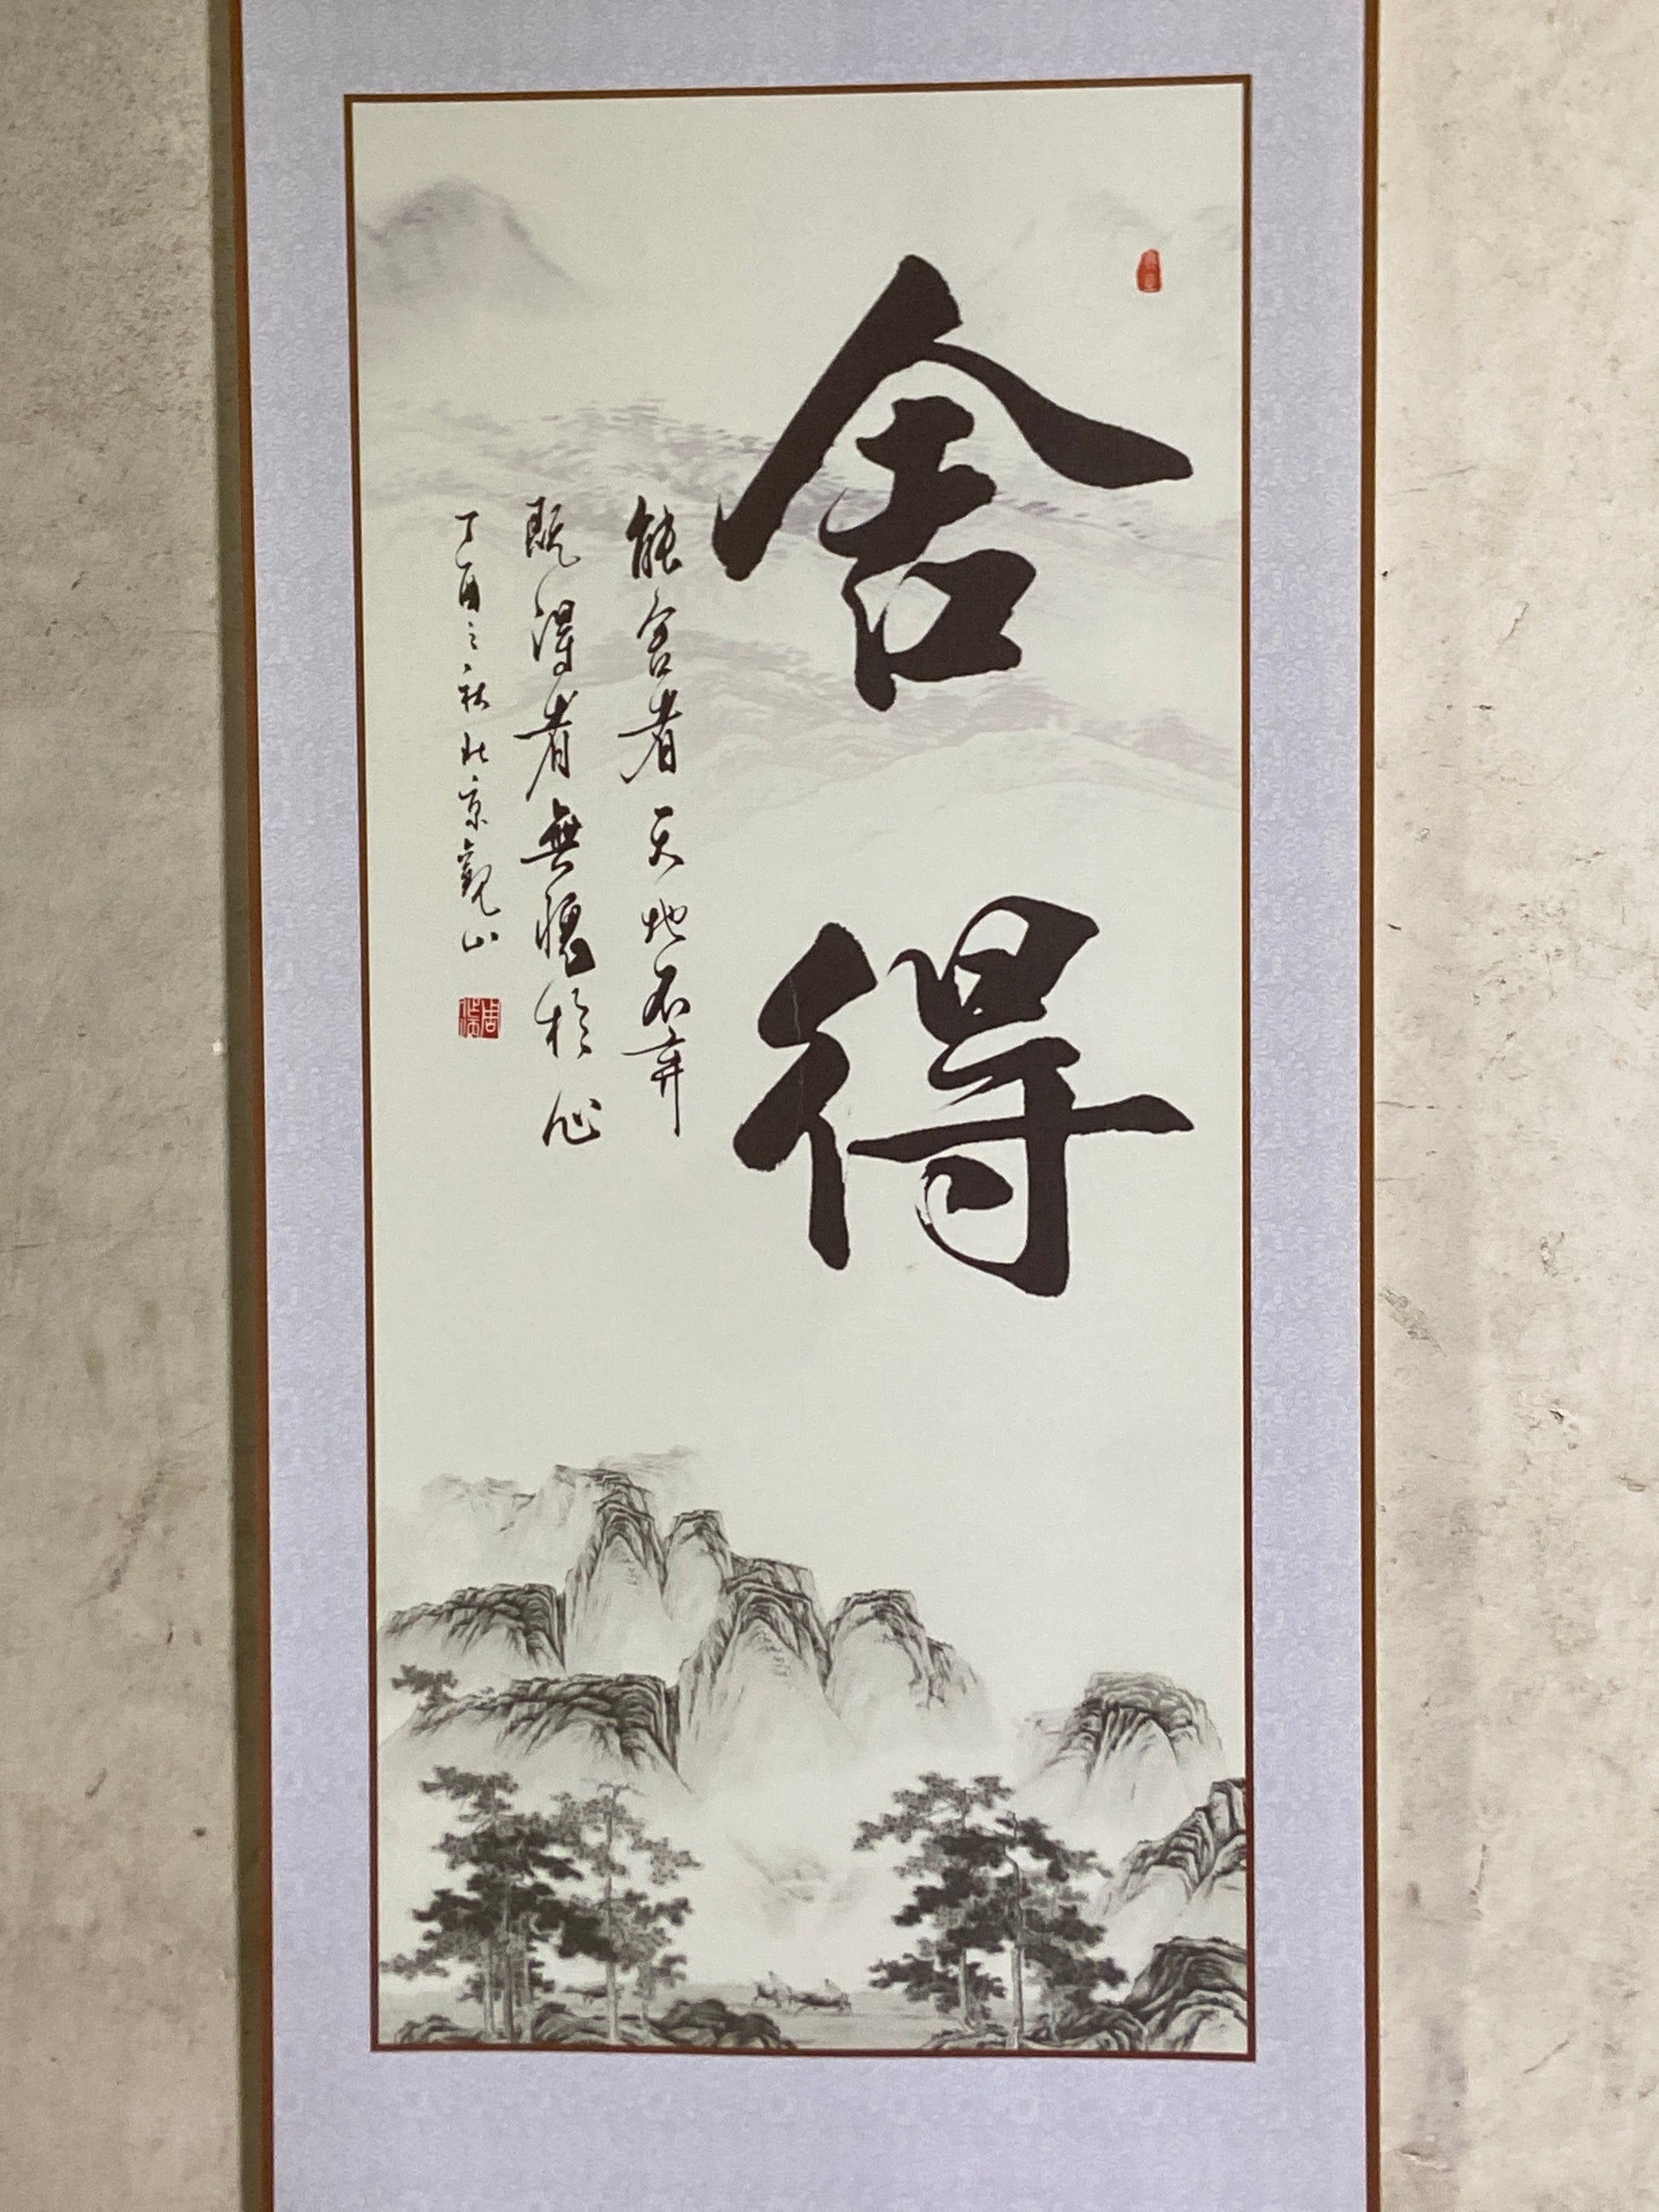 舍得
能舍者天地不弃
既得者無愧於心
丁酉之秋北京觀山